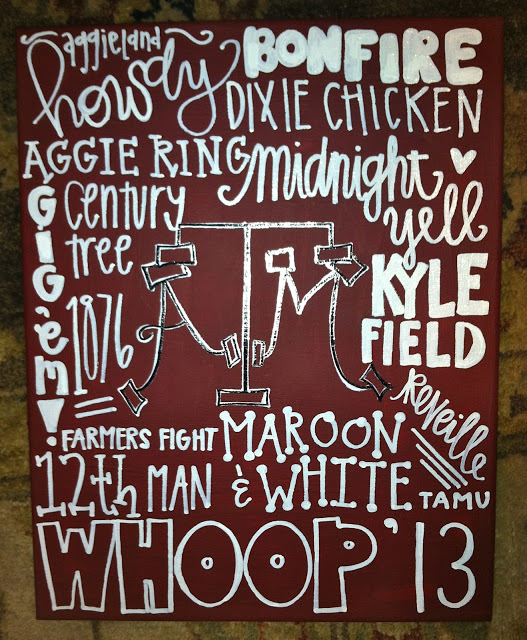 aggieland
howdy
BONFIRE
DIXIE CHICKEN
AGGIE RING
midnight
yell
GIG'em!
century
tree
1876
ATM
KYLE
FIELD
REVEILLE
FARMERS FIGHT
MAROON
& WHITE
12th MAN
TAMU
WHOOP '13